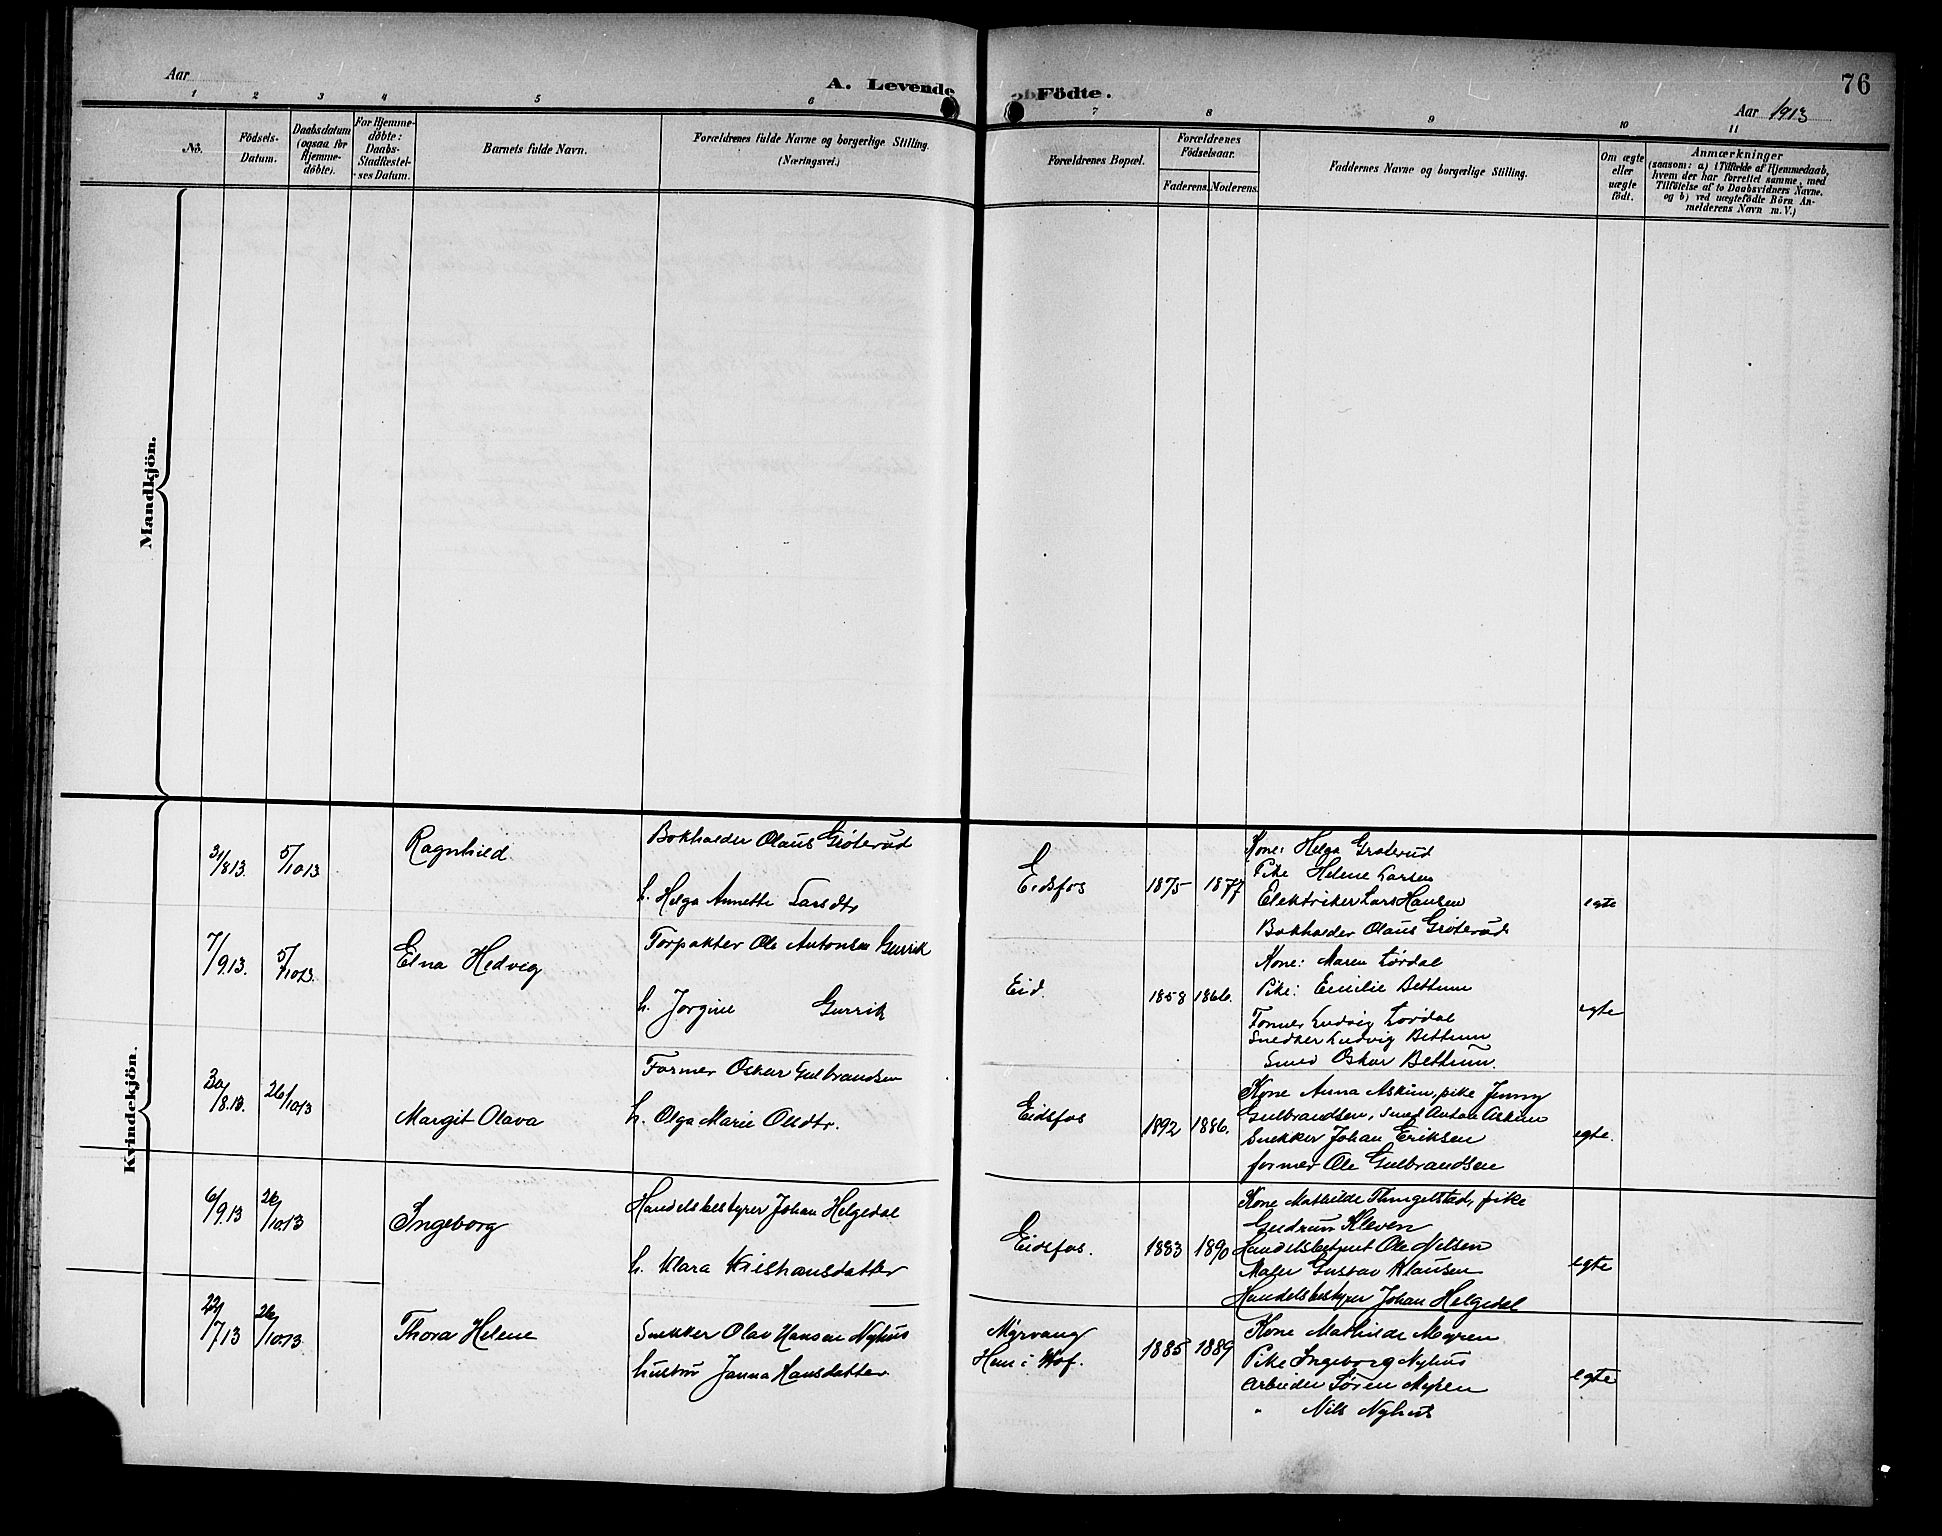 76
Aar
A. Levende Födte.
Aar 1913
1 2 3 4 5 6 7 8 9 10 11
No.
Födsels-Datum.
Daabsdatum (ogsaa for Hjemme-döbte).
For Hjemme-döbte: Daabs-Stadfæstel-ses Datum.
Barnets fulde Navn.
Forældrenes fulde Navne og borgerlige Stilling.
(Næringsvei.)
Forældrenes Bopæl.
Forældrenes Födselsaar.
Faderens. Moderens.
Faddernes Navne og borgerlige Stilling.
Om ægte eller uægte födt.
Anmærkninger
(saasom: a) i Tilfælde af Hjemmedaab,
hvem der har forrettet samme, med
Tilföielse af to Daabsvidners Navne.
og b) ved uægtefödte Börn An-
melderens Navn m. V.)
Mandkjön.
Kvindekjön.
31/8 13. 5/10 13 Ragnhild
Bokholder Olaus Grøterud
h. Helga Annette Larsdtr
Eidsfos 1875 1877
Kone: Helga Grøterud
Pike Helene Larsen
Elektriker Lars Hansen
Bokholder Olaus Grøterud
egte
7/9 13. 5/10 13. Elna Hedvig
Forpakter Ole Antonsen Gurrik
h. Jorgine Gurrik
Eid. 1858 1866.
Kone: Maren Lørdal
Pike: Emilie Bettum
Former Ludvig Lørdal
Snedker Ludvig Bettum
Smed Oskar Bettum.
egte
30/8.13. 26/10 13 Margit Olava
Former Oskar Gulbrandsen
h. Olga Marie Olsdtr.
Eidsfos 1892 1886.
Kone Anna Askim, pike Jenny
Gulbrandsen, smed Anton Askim
Snekker Johan Eriksen
former Ole Gulbrandsen
egte.
6/9.13 26/10.13 Ingeborg
Handelsbestyrer Johan Helgedal
h. Klara
Eidsfos. 1883 1890
Kone Mathilde Thingelstad, pike
Gudrun Kleven
Handelsbestyrer Ole Nilsen
Maler Gustav Klausen
Handelsbestyrer Johan Helgedal
egte
22/7 13 26/10 13 Thora Helene
Snekker Olav Hansen Nyhus
hustru Janna Hansdatter
Myrvang
Hem i Hof. 1885 1889
Kone Mathilde Myren
Pike Ingeborg Nyhus
Arbeider Søren Myren
" Nils Nyhus
egte